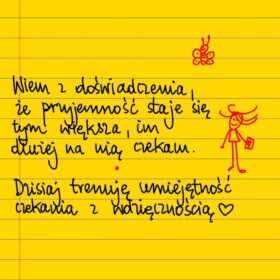 Wiem z doświadczenia,
że przyjemność staje się
tym większa, im
dłużej na nią czekam.
Dzisiaj trenuję umiejętność
czekania z wdzięcznością ♡